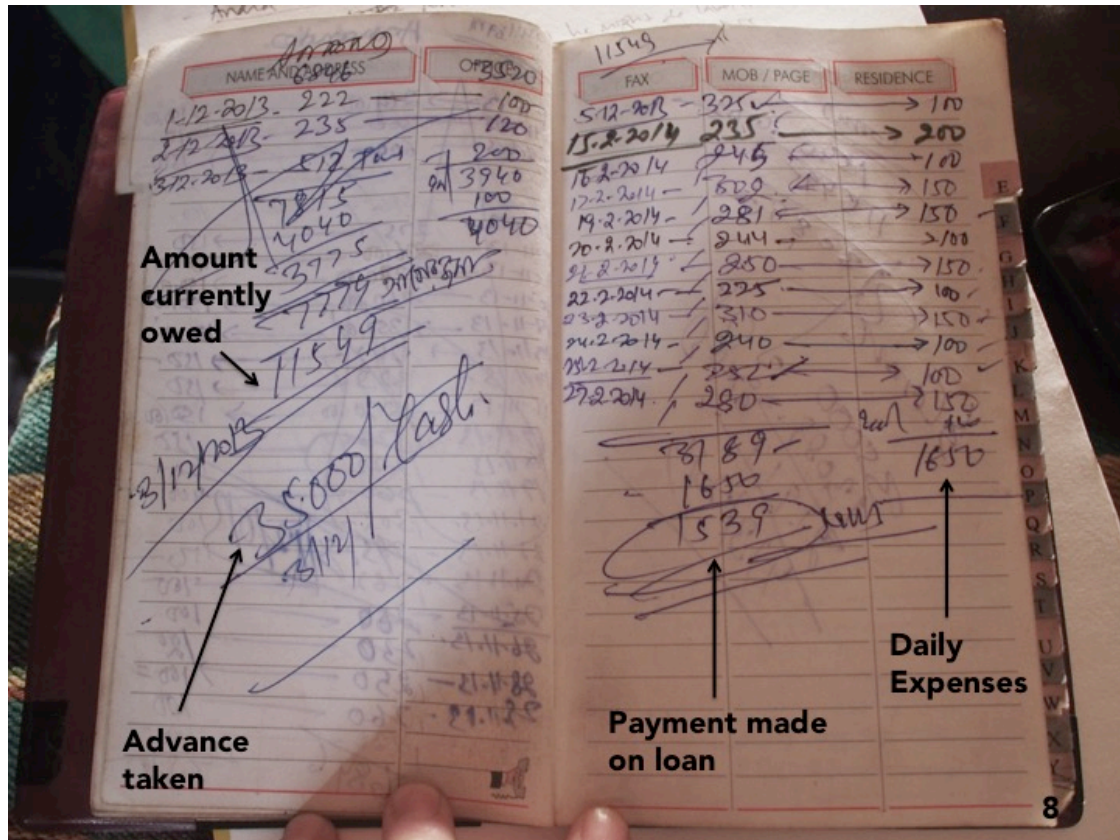 6846 3520
NAME AND ADDRESS
1-12-2013 222 100
2-12-2013 235 120
3-12-2013 512 200
3940
7815 100
4040 4040
3775
7779
11549
3/12/2013
35000/ Cash.
3/12/
Amount
currently
owed
Advance
taken
11549
FAX MOB / PAGE RESIDENCE
5-12-2013 - 325 100
15-2-2014 235 200
16-2-2014 246 100
17-2-2014 - 150
19-2-2014 - 281 150
20-2-2014 - 244 100
21-2-2014 - 250 150
22-2-2014 - 225 100
23-2-2014 - 310 150
24-2-2014 - 240 100
25-2-2014 - 100
27-2-2014 280 150
3189 1650
1650
1539
Payment made
on loan
Daily
Expenses
E
F
G
H
I
J
K
L
M
N
O
P
Q
R
S
T
U
V
W
X
Y
8